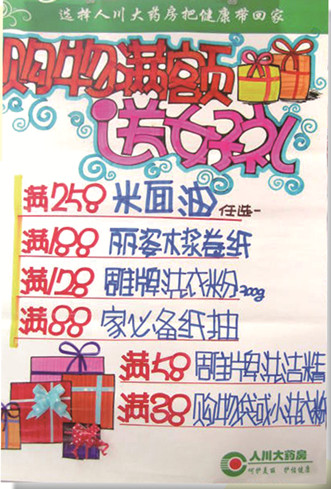 选择人川大药房把健康带回家
购物满额
送好礼
满258 米面油 任选一
满188 丽姿木浆卷纸
满128 雕牌洗衣粉 700g
满88 家必备纸抽
满58 雕牌洗洁精
满38 购物袋或小洗衣粉
人川大药房
呵护美丽 护佑健康